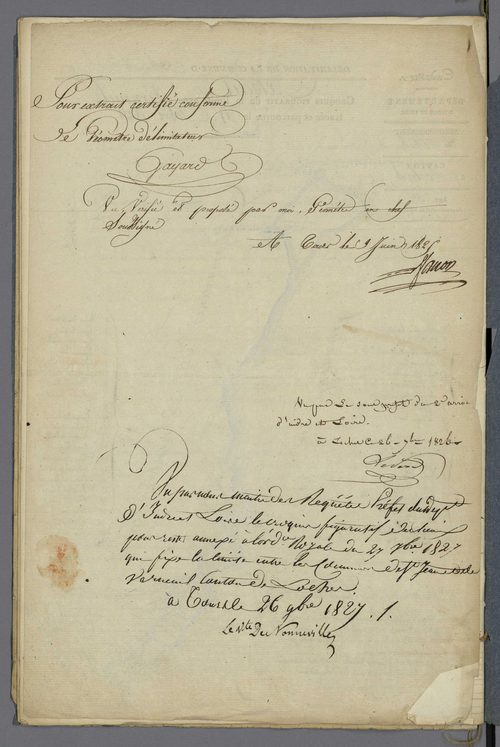 Pour extrait certifié conforme
Le Géomètre délimitateur
Gayard
Vu, Vérifié et proposé par moi, Géomètre en chef
Soussigné
A Tours le 9 Juin 182
Vu par le sous préfet du 2e arron
d'indre et Loire.
à Loches 26 7bre 1826
Vu par nous Maitre des Requêtes Préfet du Dept
d'Indre et Loire le croquis figuratif
pour rester annexé à l'ord. Royale du 27 9bre 1827
qui fixe la limite entre les Communes de St Jean et de
Verneuil canton de Loches.
à Tours le 26 9bre 1827.
Le Vte